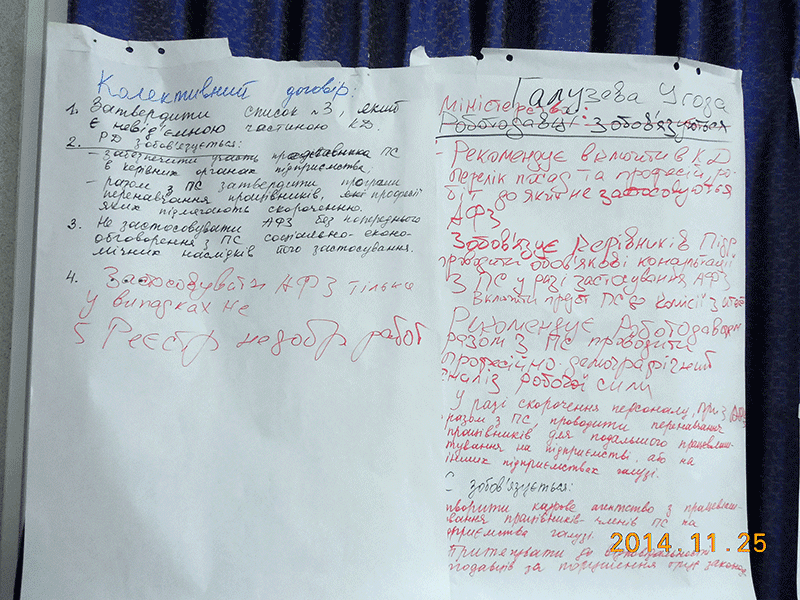 Колективний договір:
1. Затвердити список №3, який
є невід'ємною частиною КД.
2. РД зобов'язується:
- забезпечити участь представника ПС
в керівних органах підприємства;
- разом з ПС затвердити програми
перенавчання працівників, які професії
яких підлягають скороченню.
3. Не застосовувати АФЗ без попереднього
обговорення з ПС соціально-еконо-
мічних наслідків його застосування.
4. Застосовувати АФЗ тільки
у випадках не
5 Реєстр недобр робот
Галузева Угода
Міністерство:
Роботодавці: зобов'язуються
- Рекомендує включити в КД
перелік посад та професій, ро-
біт до яких не застосовуються
АФЗ
Зобов'язує керівників Підр
проводити обов'язкові консультації
з ПС у разі застосування АФЗ
Включати предст ПС до комісії з
Рекомендує Роботодавцям
разом з ПС проводити
професійно-демографічний
аналіз робочої сили
У разі скорочення персоналу, при З АФЗ
разом з ПС, проводити перенавчання
працівників для подальшого працевлаш-
тування на підприємстві або на
інших підприємствах галузі.
С зобов'язується:
творити кадрове агентство з працевлаш-
вання працівників-членів ПС на
дприємства галузі.
Притягувати до відповідальності
одавців за порушення труд законод
2014.11.25